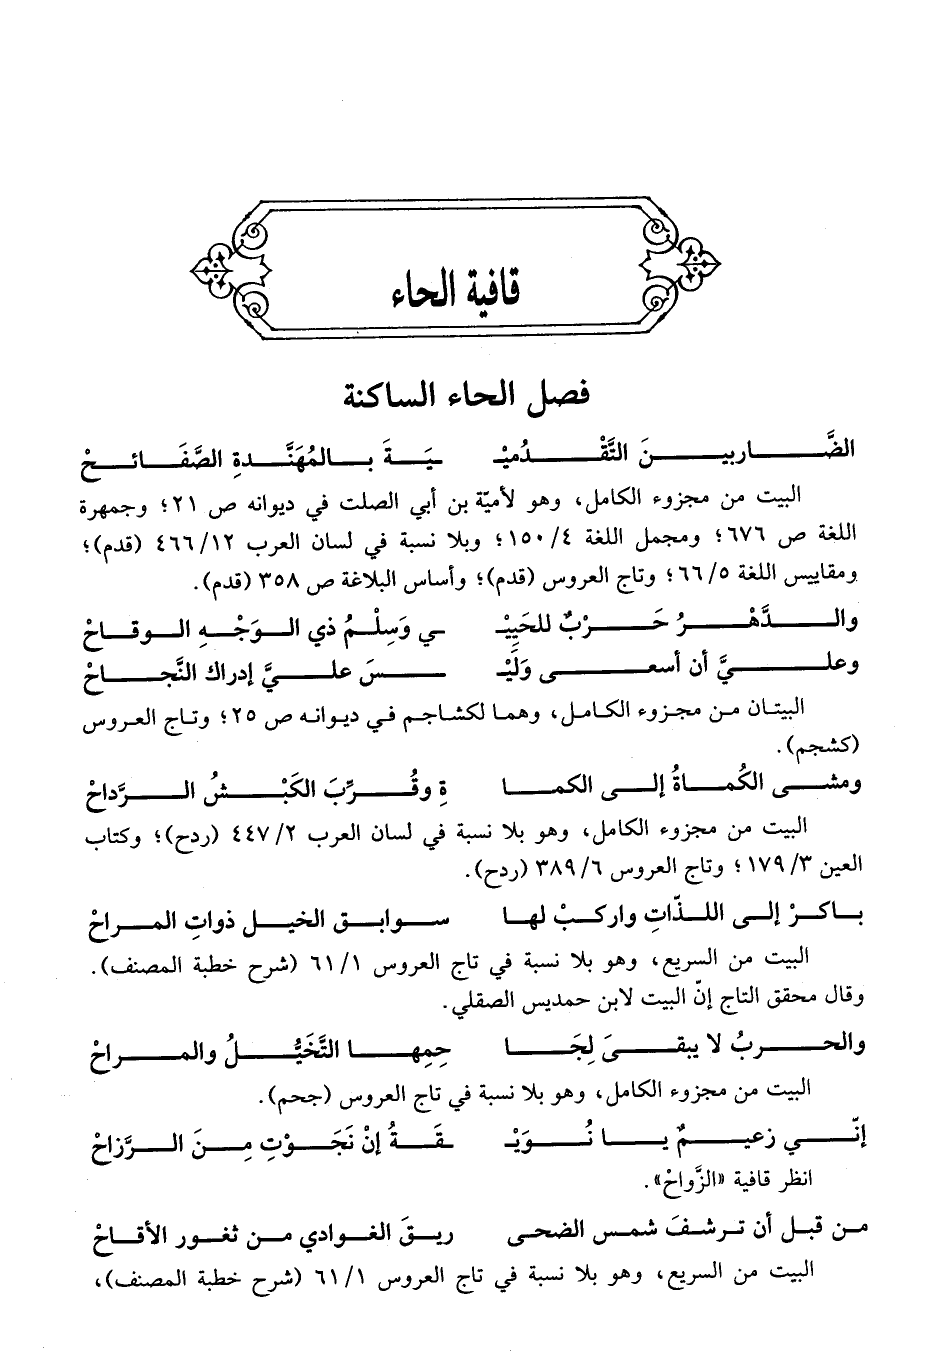 قافية الحاء
فصل الحاء الساكنة
الضَّاربينَ التَّقْدُميْـ ـيَةَ بالمُهَنَّدةِ الصَّفَائحْ
البيت من مجزوء الكامل، وهو لأميّة بن أبي الصلت في ديوانه ص ٢١؛ وجمهرة
اللغة ص ٦٧٦؛ ومجمل اللغة ٤/ ١٥٠؛ وبلا نسبة في لسان العرب ١٢/ ٤٦٦ (قدم)؛
ومقاييس اللغة ٥/ ٦٦؛ وتاج العروس (قدم)؛ وأساس البلاغة ص ٣٥٨ (قدم).
والدَّهْرُ حَرْبٌ للحَيِيْـ ـي وَسِلْمُ ذي الوَجْهِ الوقاحْ
وعليَّ أن أسعى وَلَيْـ ـسَ عليَّ إدراك النَّجاحْ
البيتان من مجزوء الكامل، وهما لكشاجم في ديوانه ص ٢٥؛ وتاج العروس
(كشجم).
ومشى الكُماةُ إلى الكما ةِ وقُرِّبَ الكَبْشُ الرَّداحْ
البيت من مجزوء الكامل، وهو بلا نسبة في لسان العرب ٢/ ٤٤٧ (ردح)؛ وكتاب
العين ٣/ ١٧٩؛ وتاج العروس ٦/ ٣٨٩ (ردح).
باكرْ إلى اللذّاتِ واركبْ لها سوابق الخيل ذواتِ المراحْ
البيت من السريع، وهو بلا نسبة في تاج العروس ١/ ٦١ (شرح خطبة المصنف).
وقال محقق التاج إنّ البيت لابن حمديس الصقلي.
والحربُ لا يبقى لِجَا حِمِها التَّخَيُّلُ والمراحْ
البيت من مجزوء الكامل، وهو بلا نسبة في تاج العروس (جحم).
إنّي زعيمٌ يا نُوَيْـ ـقَةُ إنْ نَجَوْتِ مِنَ الرَّزاحْ
انظر قافية «الزَّواحْ».
من قبل أن ترشفَ شمس الضحى ريقَ الغوادي من ثغور الأقاحْ
البيت من السريع، وهو بلا نسبة في تاج العروس ١/ ٦١ (شرح خطبة المصنف)،